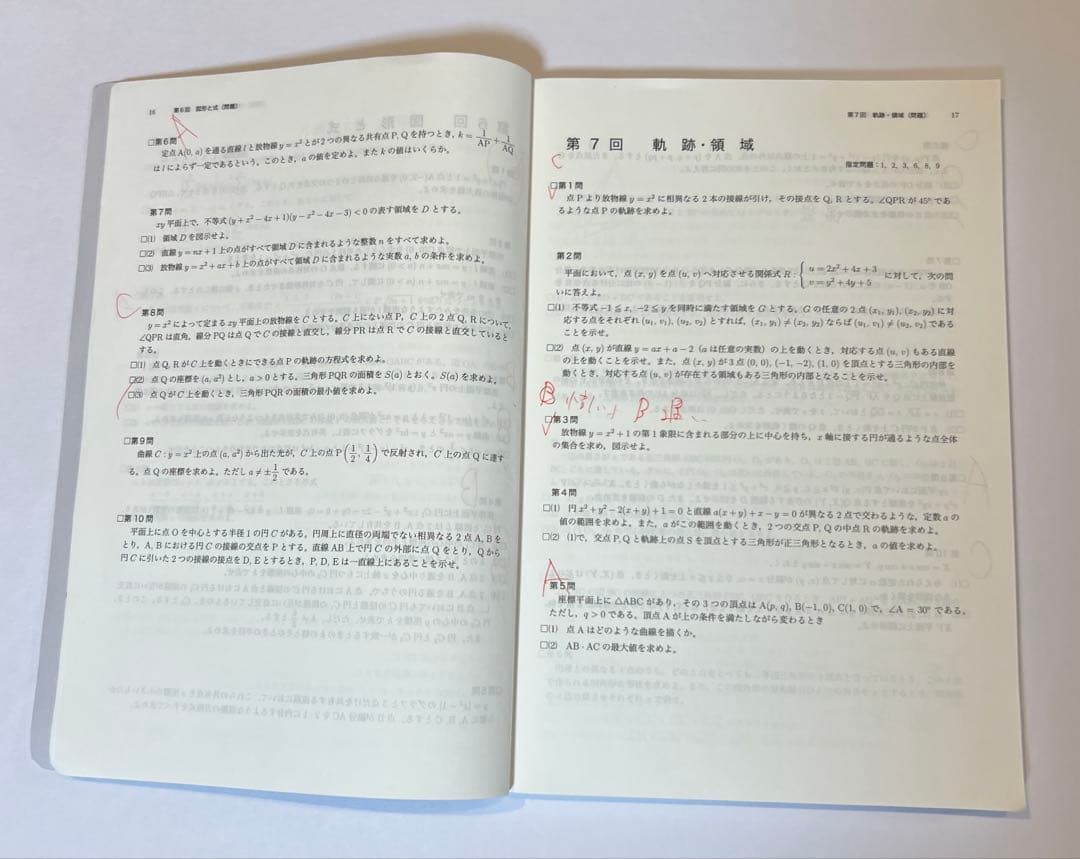 16 第6回 図形と式（問題）
A
□第6問
定点A(0, a)を通る直線lと放物線y=x²とが2つの異なる共有点P, Qを持つとき，k=1/AP+1/AQ
はlによらず一定であるという。このとき，aの値を定めよ。またkの値はいくらか。
第7問
xy平面上で，不等式(y+x²−4x+1)(y−x²−4x−3)<0の表す領域をDとする。
□(1) 領域Dを図示せよ。
□(2) 直線y=nx+1上の点がすべて領域Dに含まれるような整数nをすべて求めよ。
□(3) 放物線y=x²+ax+b上の点がすべて領域Dに含まれるような実数a, bの条件を求めよ。
C
第8問
y=x²によって定まるxy平面上の放物線をCとする。C上にない点P，C上の2点Q, Rについて，
∠QPRは直角，線分PQは点QでCの接線と直交し，線分PRは点RでCの接線と直交していると
する。
□(1) 点Q, RがC上を動くときにできる点Pの軌跡の方程式を求めよ。
□(2) 点Qの座標を(a, a²)とし，a>0とする。三角形PQRの面積をS(a)とおく。S(a)を求めよ。
□(3) 点QがC上を動くとき，三角形PQRの面積の最小値を求めよ。
□第9問
曲線C : y=x²上の点(a, a²)から出た光が，C上の点P(1/2, 1/4)で反射され，C上の点Qに達す
る。点Qの座標を求めよ。ただしa≠±1/2である。
□第10問
平面上に点Oを中心とする半径1の円Cがある。円周上に直径の両端でない相異なる2点A, Bを
とり，A, Bにおける円Cの接線の交点をPとする。直線AB上で円Cの外部に点Qをとり，Qから
円Cに引いた2つの接線の接点をD, Eとするとき，P, D, Eは一直線上にあることを示せ。
第7回 軌跡・領域（問題） 17
第7回 軌跡・領域
指定問題：1, 2, 3, 6, 8, 9
C
□第1問
点Pより放物線y=x²に相異なる2本の接線が引け，その接点をQ, Rとする。∠QPRが45°であ
るような点Pの軌跡を求めよ。
第2問
平面において，点(x, y)を点(u, v)へ対応させる関係式R : {u=2x²+4x+3 v=y²+4y+5 に対して，次の問
いに答えよ。
□(1) 不等式−1≦x, −2≦yを同時に満たす領域をGとする。Gの任意の2点(x₁, y₁), (x₂, y₂)に対
応する点をそれぞれ(u₁, v₁), (u₂, v₂)とすれば，(x₁, y₁)≠(x₂, y₂)ならば(u₁, v₁)≠(u₂, v₂)である
ことを示せ。
□(2) 点(x, y)が直線y=ax+a−2（aは任意の実数）の上を動くとき，対応する点(u, v)もある直線
の上を動くことを示せ。また，点(x, y)が3点(0, 0), (−1, −2), (1, 0)を頂点とする三角形の内部を
動くとき，対応する点(u, v)が存在する領域もある三角形の内部となることを示せ。
B
□第3問
放物線y=x²+1の第1象限に含まれる部分の上に中心を持ち，x軸に接する円が通るような点全体
の集合を求め，図示せよ。
第4問
□(1) 円x²+y²−2(x+y)+1=0と直線a(x+y)+x−y=0が異なる2点で交わるような，定数aの
値の範囲を求めよ。また，aがこの範囲を動くとき，2つの交点P, Qの中点Rの軌跡を求めよ。
□(2) (1)で，交点P, Qと軌跡上の点Sを頂点とする三角形が正三角形となるとき，aの値を求めよ。
A
第5問
座標平面上に△ABCがあり，その3つの頂点はA(p, q), B(−1, 0), C(1, 0)で，∠A=30°である。
ただし，q>0である。頂点Aが上の条件を満たしながら変わるとき
□(1) 点Aはどのような曲線を描くか。
□(2) AB・ACの最大値を求めよ。